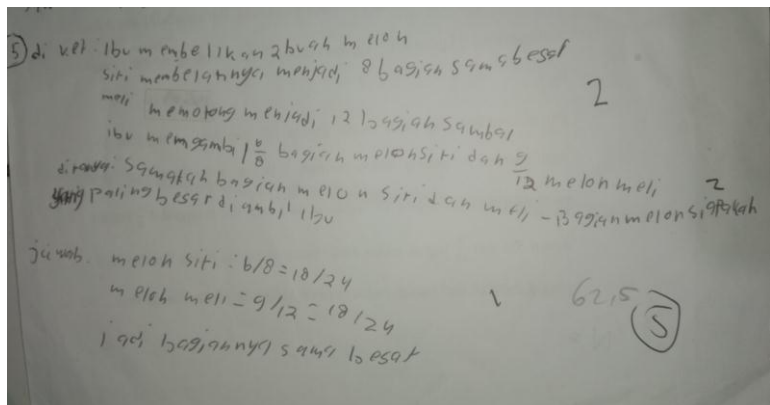 5) diket : Ibu membelikan 2 buah melon
siti membelahnya menjadi 8 bagian sama besar
2
meli memotong menjadi 12 bagian sambar
ibu mengambil 6/8 bagian melon siti dan 9/12 melon meli
ditanya : samakah bagian melon siti dan meli - Bagian melon siapakah
2
yang paling besar diambil ibu
jawab melon siti : 6/8 = 18/24
melon meli = 9/12 = 18/24
1
62,5
5
jadi bagiannya sama besar